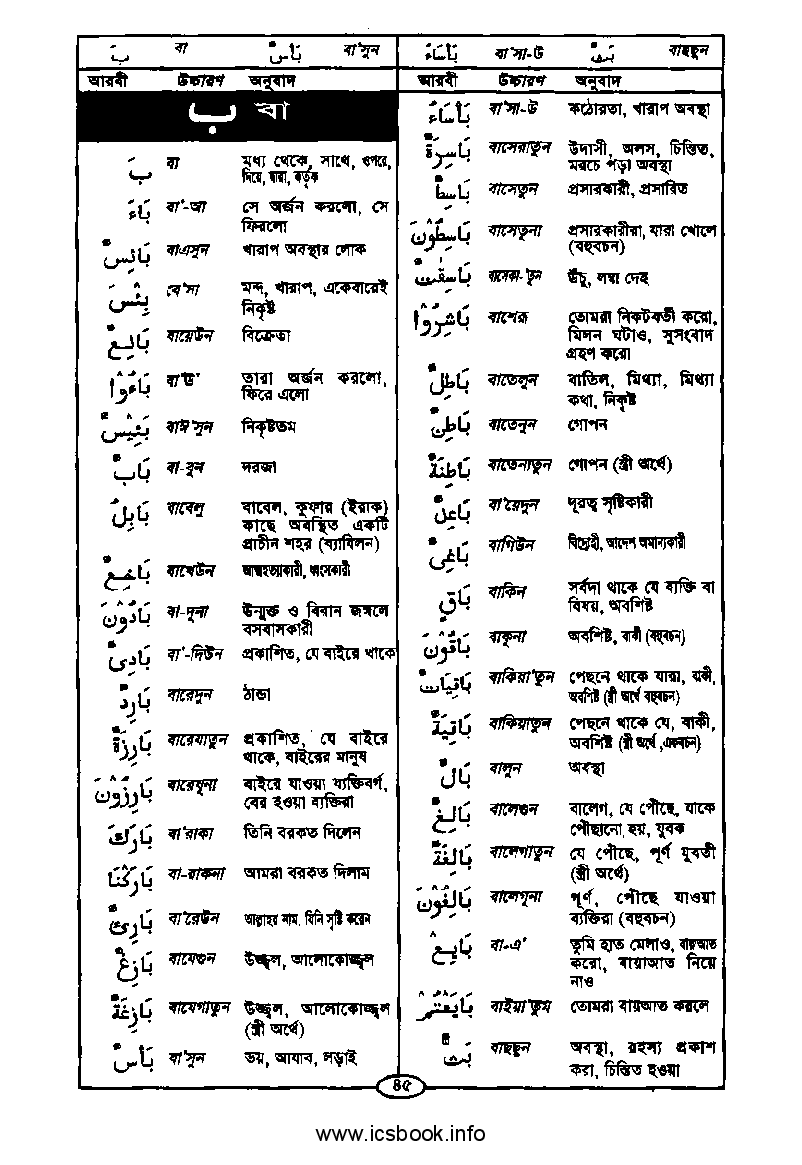 بَ বা بَأْسٌ বা'সুন
আরবী উচ্চারণ অনুবাদ
ب বা
بَ বা মধ্য থেকে, সাথে, ওপরে,
দিয়ে, দ্বারা, কর্তৃক
بَاءَ বা'-আ সে অর্জন করলো, সে
ফিরলো
بَائِسٌ বাএসুন খারাপ অবস্থার লোক
بِئْسَ বে'সা মন্দ, খারাপ, একেবারেই
নিকৃষ্ট
بَائِعٌ বায়েউন বিক্রেতা
بَاءُوْا বা'উ তারা অর্জন করলো,
ফিরে এলো
بَئِيْسٌ বাঈ'সুন নিকৃষ্টতম
بَابٌ বা-বুন দরজা
بَابِلُ বাবেলু বাবেল, কুফার (ইরাক)
কাছে অবস্থিত একটি
প্রাচীন শহর (ব্যাবিলন)
بَاخِعٌ বাখেউন আত্মহত্যাকারী, ধ্বংসকারী
بَادُوْنَ বা-দুনা উন্মুক্ত ও বিরান জঙ্গলে
বসবাসকারী
بَادِئٌ বা'-দিউন প্রকাশিত, যে বাইরে থাকে
بَارِدٌ বারেদুন ঠান্ডা
بَارِزَةٌ বারেযাতুন প্রকাশিত, যে বাইরে
থাকে, বাইরের মানুষ
بَارِزُوْنَ বারেযুনা বাইরে যাওয়া ব্যক্তিবর্গ,
বের হওয়া ব্যক্তিরা
بَارَكَ বা'রাকা তিনি বরকত দিলেন
بَارَكْنَا বা-রাকনা আমরা বরকত দিলাম
بَارِئٌ বা'রেউন আল্লাহর নাম, যিনি সৃষ্টি করেন
بَازِغٌ বাযেগুন উজ্জ্বল, আলোকোজ্জ্বল
بَازِغَةٌ বাযেগাতুন উজ্জ্বল, আলোকোজ্জ্বল
(স্ত্রী অর্থে)
بَأْسٌ বা'সুন ভয়, আযাব, লড়াই
بَأْسَاءُ বা'সা-উ بَثٌّ বাছছুন
আরবী উচ্চারণ অনুবাদ
بَأْسَاءُ বা'সা-উ কঠোরতা, খারাপ অবস্থা
بَاسِرَةٌ বাসেরাতুন উদাসী, অলস, চিন্তিত,
মরচে পড়া অবস্থা
بَاسِطٌ বাসেতুন প্রসারকারী, প্রসারিত
بَاسِطُوْنَ বাসেতুনা প্রসারকারীরা, যারা খোলে
(বহুবচন)
بَاسِقٰتٌ বাসেকা-তুন উঁচু, লম্বা দেহ
بَاشِرُوْا বাশেরু তোমরা নিকটবর্তী করো,
মিলন ঘটাও, সুসংবাদ
গ্রহণ করো
بَاطِلٌ বাতেলুন বাতিল, মিথ্যা, মিথ্যা
কথা, নিকৃষ্ট
بَاطِنٌ বাতেনুন গোপন
بَاطِنَةٌ বাতেনাতুন গোপন (স্ত্রী অর্থে)
বা'য়েদুন দূরত্ব সৃষ্টিকারী
بَاغِیٌ বাগিউন বিদ্রোহী, আদেশ অমান্যকারী
بَاقٍ বাকিন সর্বদা থাকে যে ব্যক্তি বা
বিষয়, অবশিষ্ট
بَاقُوْنَ বাকুনা অবশিষ্ট, বাকী (বহুবচন)
بَاقِيَاتٌ বাকিয়া'তুন পেছনে থাকে যারা, বাকী,
অবশিষ্ট (স্ত্রী অর্থে বহুবচন)
بَاقِيَةٌ বাকিয়াতুন পেছনে থাকে যে, বাকী,
অবশিষ্ট (স্ত্রী অর্থে, একবচন)
بَالٌ বালুন অবস্থা
بَالِغٌ বালেগুন বালেগ, যে পৌছে, যাকে
পৌছানো হয়, যুবক
بَالِغَةٌ বালেগাতুন যে পৌছে, পূর্ণ যুবতী
(স্ত্রী অর্থে)
بَالِغُوْنَ বালেগুনা পূর্ণ, পৌছে যাওয়া
ব্যক্তিরা (বহুবচন)
بَايِعْ বা-এ' তুমি হাত মেলাও, বায়আত
করো, বায়াআত নিয়ে
নাও
بَايَعْتُمْ বাইয়া'তুম তোমরা বায়আত করলে
بَثٌّ বাছছুন অবস্থা, রহস্য প্রকাশ
করা, চিন্তিত হওয়া
৪৫
www.icsbook.info